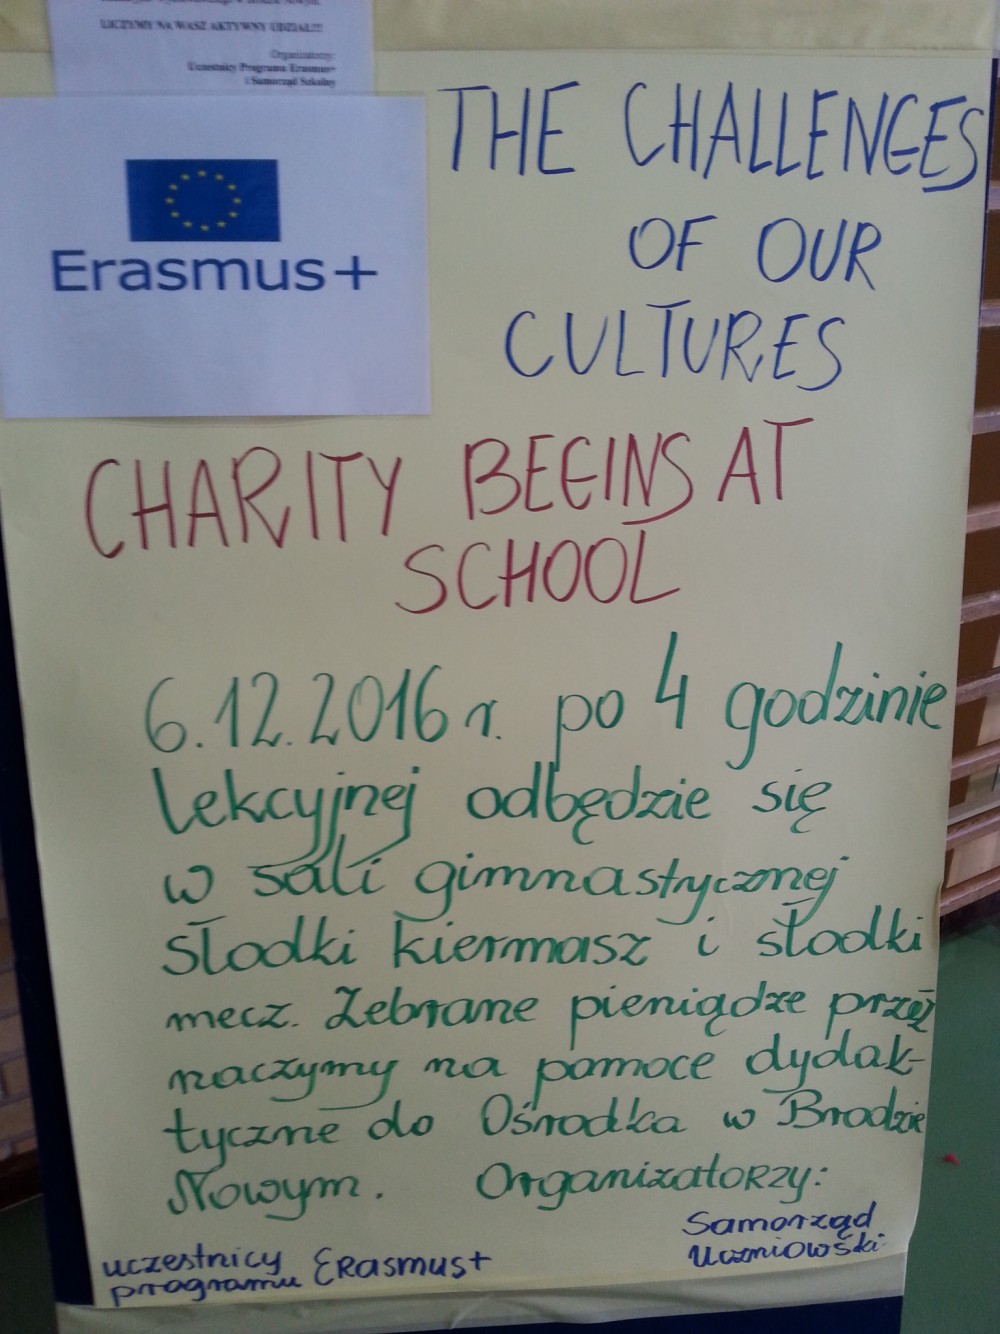 LICZYMY NA WASZ AKTYWNY UDZIAŁ!!!
Organizatorzy:
Uczestnicy Programu Erasmus+
i Samorząd Szkolny
Erasmus+
THE CHALLENGES
OF OUR
CULTURES
CHARITY BEGINS AT
SCHOOL
6.12.2016 r. po 4 godzinie
lekcyjnej odbędzie się
w sali gimnastycznej
słodki kiermasz i słodki
mecz. Zebrane pieniądze prze-
znaczymy na pomoce dydak-
tyczne do Ośrodka w Brodzie
Nowym. Organizatorzy:
Samorząd
Uczniowski
uczestnicy
programu Erasmus+